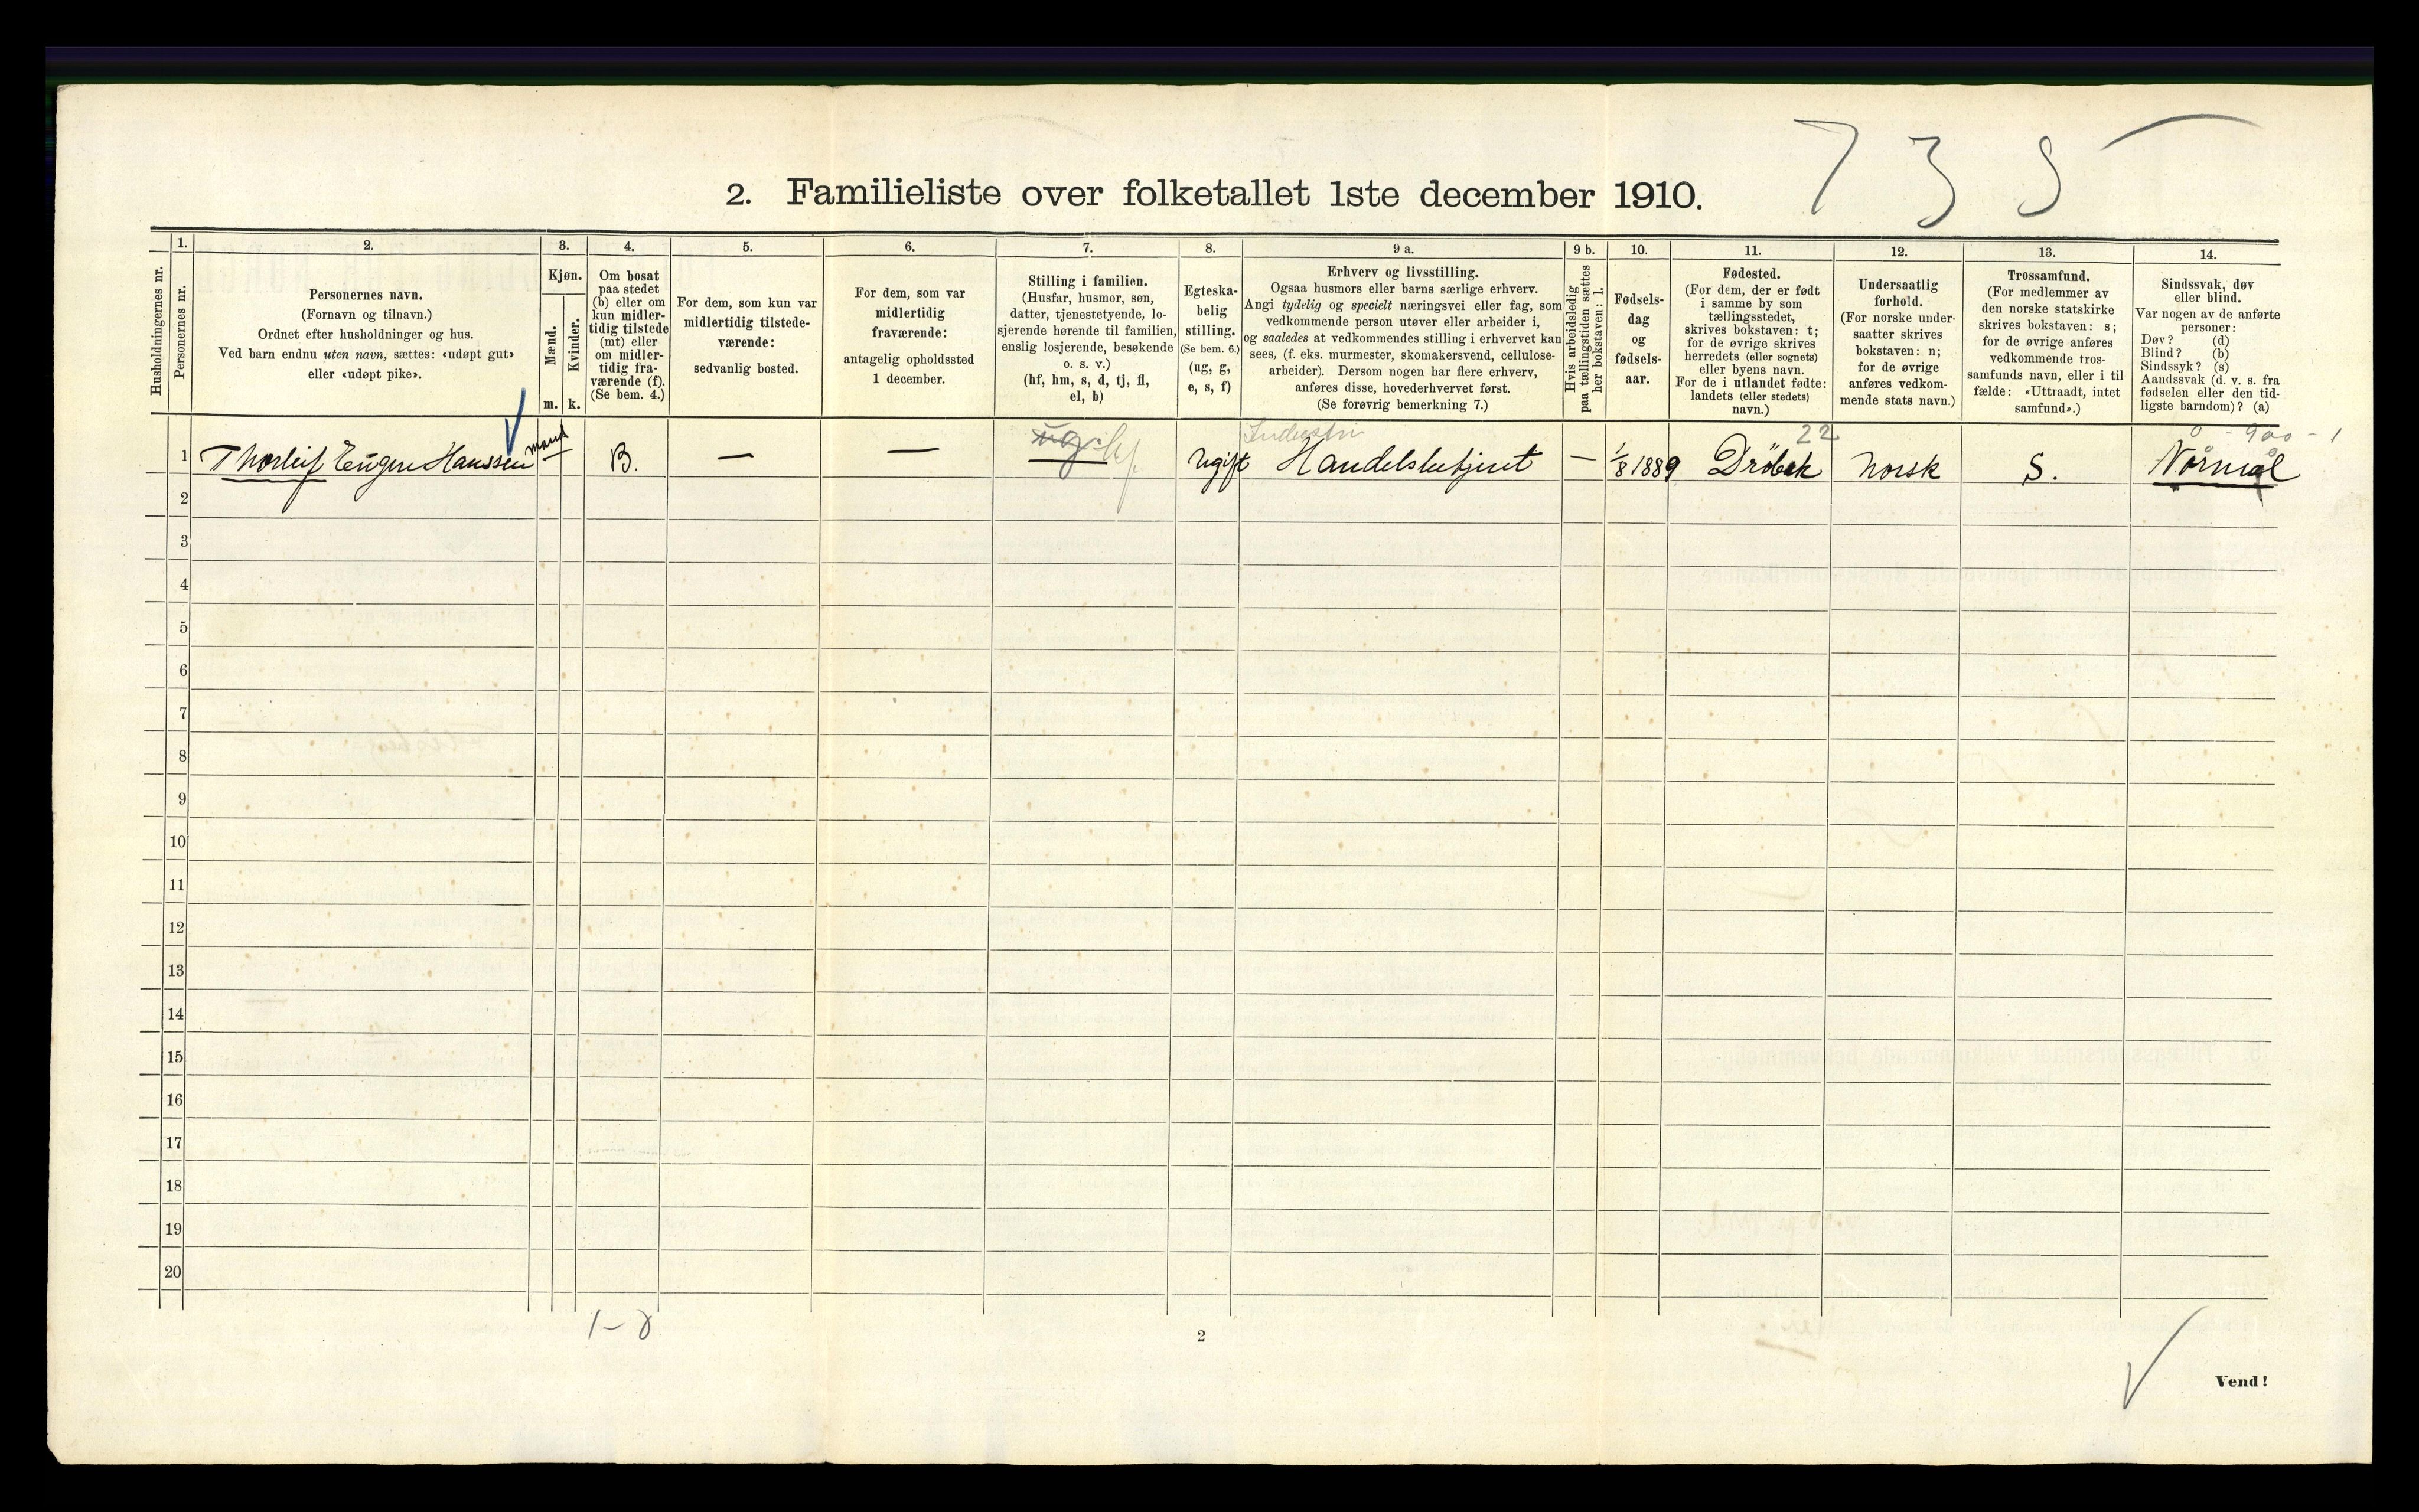 7 3 5
2. Familieliste over folketallet 1ste december 1910.
Husholdningernes nr.
1.
Personernes nr.
2.
Personernes navn.
(Fornavn og tilnavn.)
Ordnet efter husholdninger og hus.
Ved barn endnu uten navn, sættes: «udøpt gut»
eller «udøpt pike».
3.
Kjøn.
Mænd.
Kvinder.
m. k.
4.
Om bosat
paa stedet
(b) eller om
kun midler-
tidig tilstede
(mt) eller
om midler-
tidig fra-
værende (f).
(Se bem. 4.)
5.
For dem, som kun var
midlertidig tilstede-
værende:
sedvanlig bosted.
6.
For dem, som var
midlertidig
fraværende:
antagelig opholdssted
1 december.
7.
Stilling i familien.
(Husfar, husmor, søn,
datter, tjenestetyende, lo-
sjerende hørende til familien,
enslig losjerende, besøkende
o. s. v.)
(hf, hm, s, d, tj, fl,
el, b)
8.
Egteska-
belig
stilling.
(Se bem. 6.)
(ug, g,
e, s, f)
9 a.
Erhverv og livsstilling.
Ogsaa husmors eller barns særlige erhverv.
Angi tydelig og specielt næringsvei eller fag, som
vedkommende person utøver eller arbeider i,
og saaledes at vedkommendes stilling i erhvervet kan
sees, (f. eks. murmester, skomakersvend, cellulose-
arbeider). Dersom nogen har flere erhverv,
anføres disse, hovederhvervet først.
(Se forøvrig bemerkning 7.)
9 b.
Hvis arbeidsledig
paa tællingstiden sættes
her bokstaven: l.
10.
Fødsels-
dag
og
fødsels-
aar.
11.
Fødested.
(For dem, der er født
i samme by som
tællingsstedet,
skrives bokstaven: t;
for de øvrige skrives
herredets (eller sognets)
eller byens navn.
For de i utlandet fødte:
landets (eller stedets)
navn.)
12.
Undersaatlig
forhold.
(For norske under-
saatter skrives
bokstaven: n;
for de øvrige
anføres vedkom-
mende stats navn.)
13.
Trossamfund.
(For medlemmer av
den norske statskirke
skrives bokstaven: s;
for de øvrige anføres
vedkommende tros-
samfunds navn, eller i til
fælde: «Uttraadt, intet
samfund».)
14.
Sindssvak, døv
eller blind.
Var nogen av de anførte
personer:
Døv? (d)
Blind? (b)
Sindssyk? (s)
Aandssvak (d. v. s. fra
fødselen eller den tid-
ligste barndom)? (a)
Industri 22 0 - 900 - 1
1 Thorleif Eugen Hanssen mand B. — — ug. hf Ugift Handelsbetjent — 1/8 1889 Dröbak Norsk S. Normal
2
3
4
5
6
7
8
9
10
11
12
13
14
15
16
17
18
19
20
1-0
2
Vend!